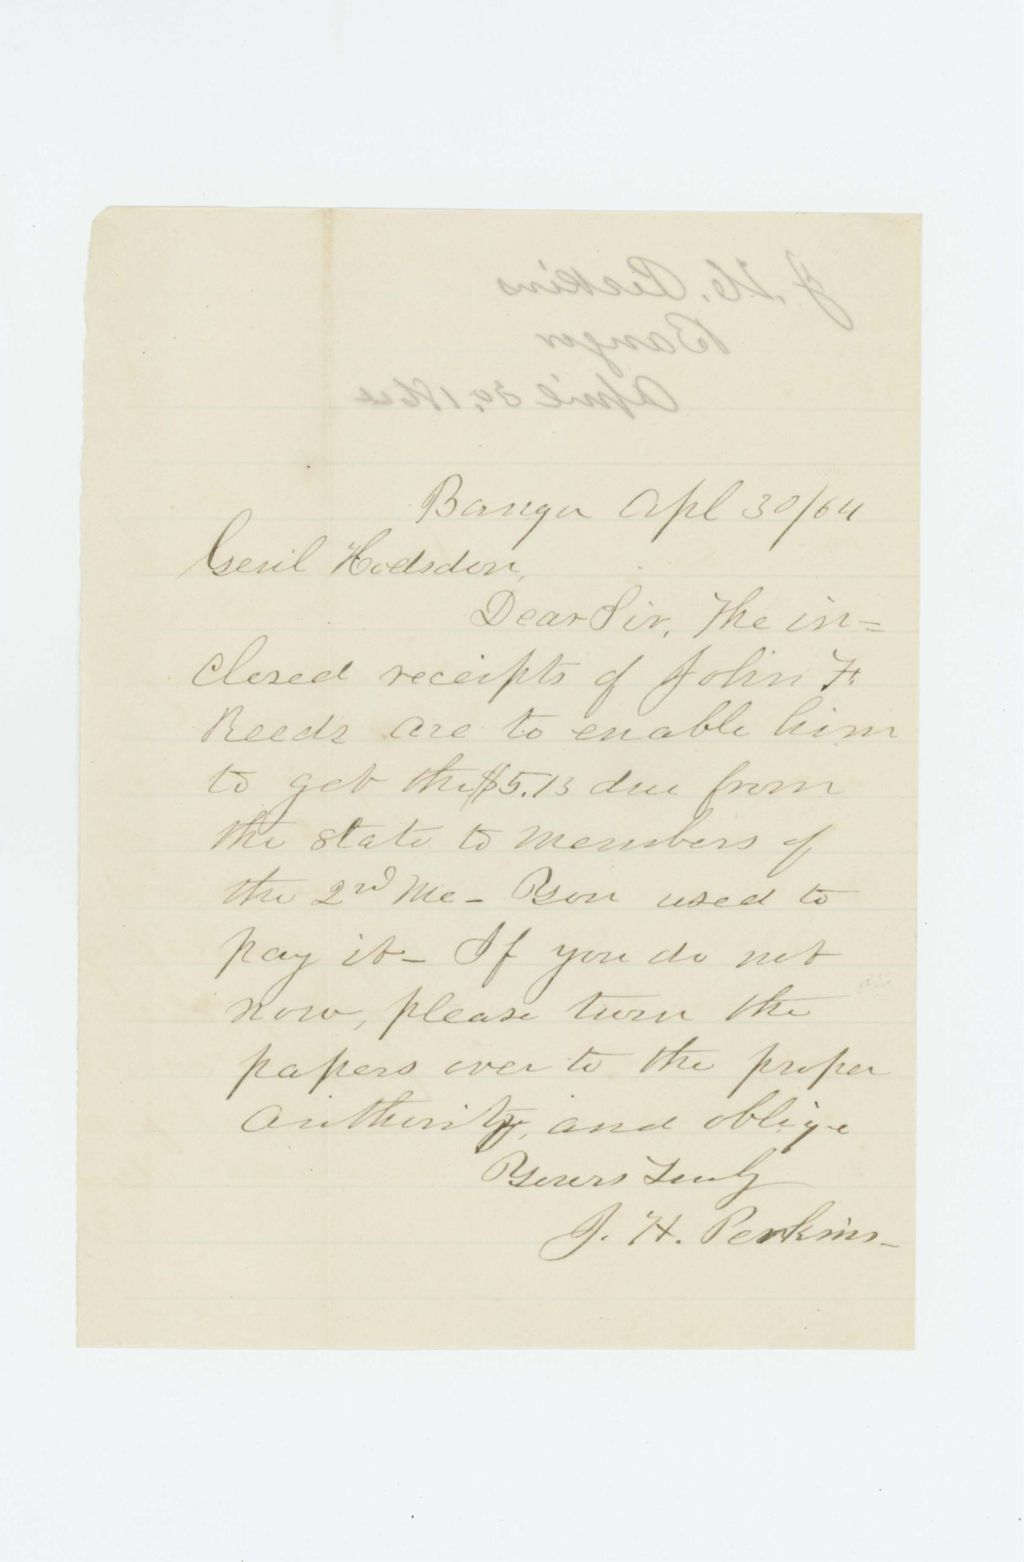 J. H. Perkins
Bangor
April 30, 1864
Bangor Apl 30/64
Genl Hodsdon,
Dear Sir, The in=
closed receipts of John F.
Reeds are to enable him
to get the $5.13 due from
the state to members of
the 2nd Me - You used to
pay it - If you do not
now, please turn the
papers over to the proper
authority, and oblige
Yours Truly
J. H. Perkins -